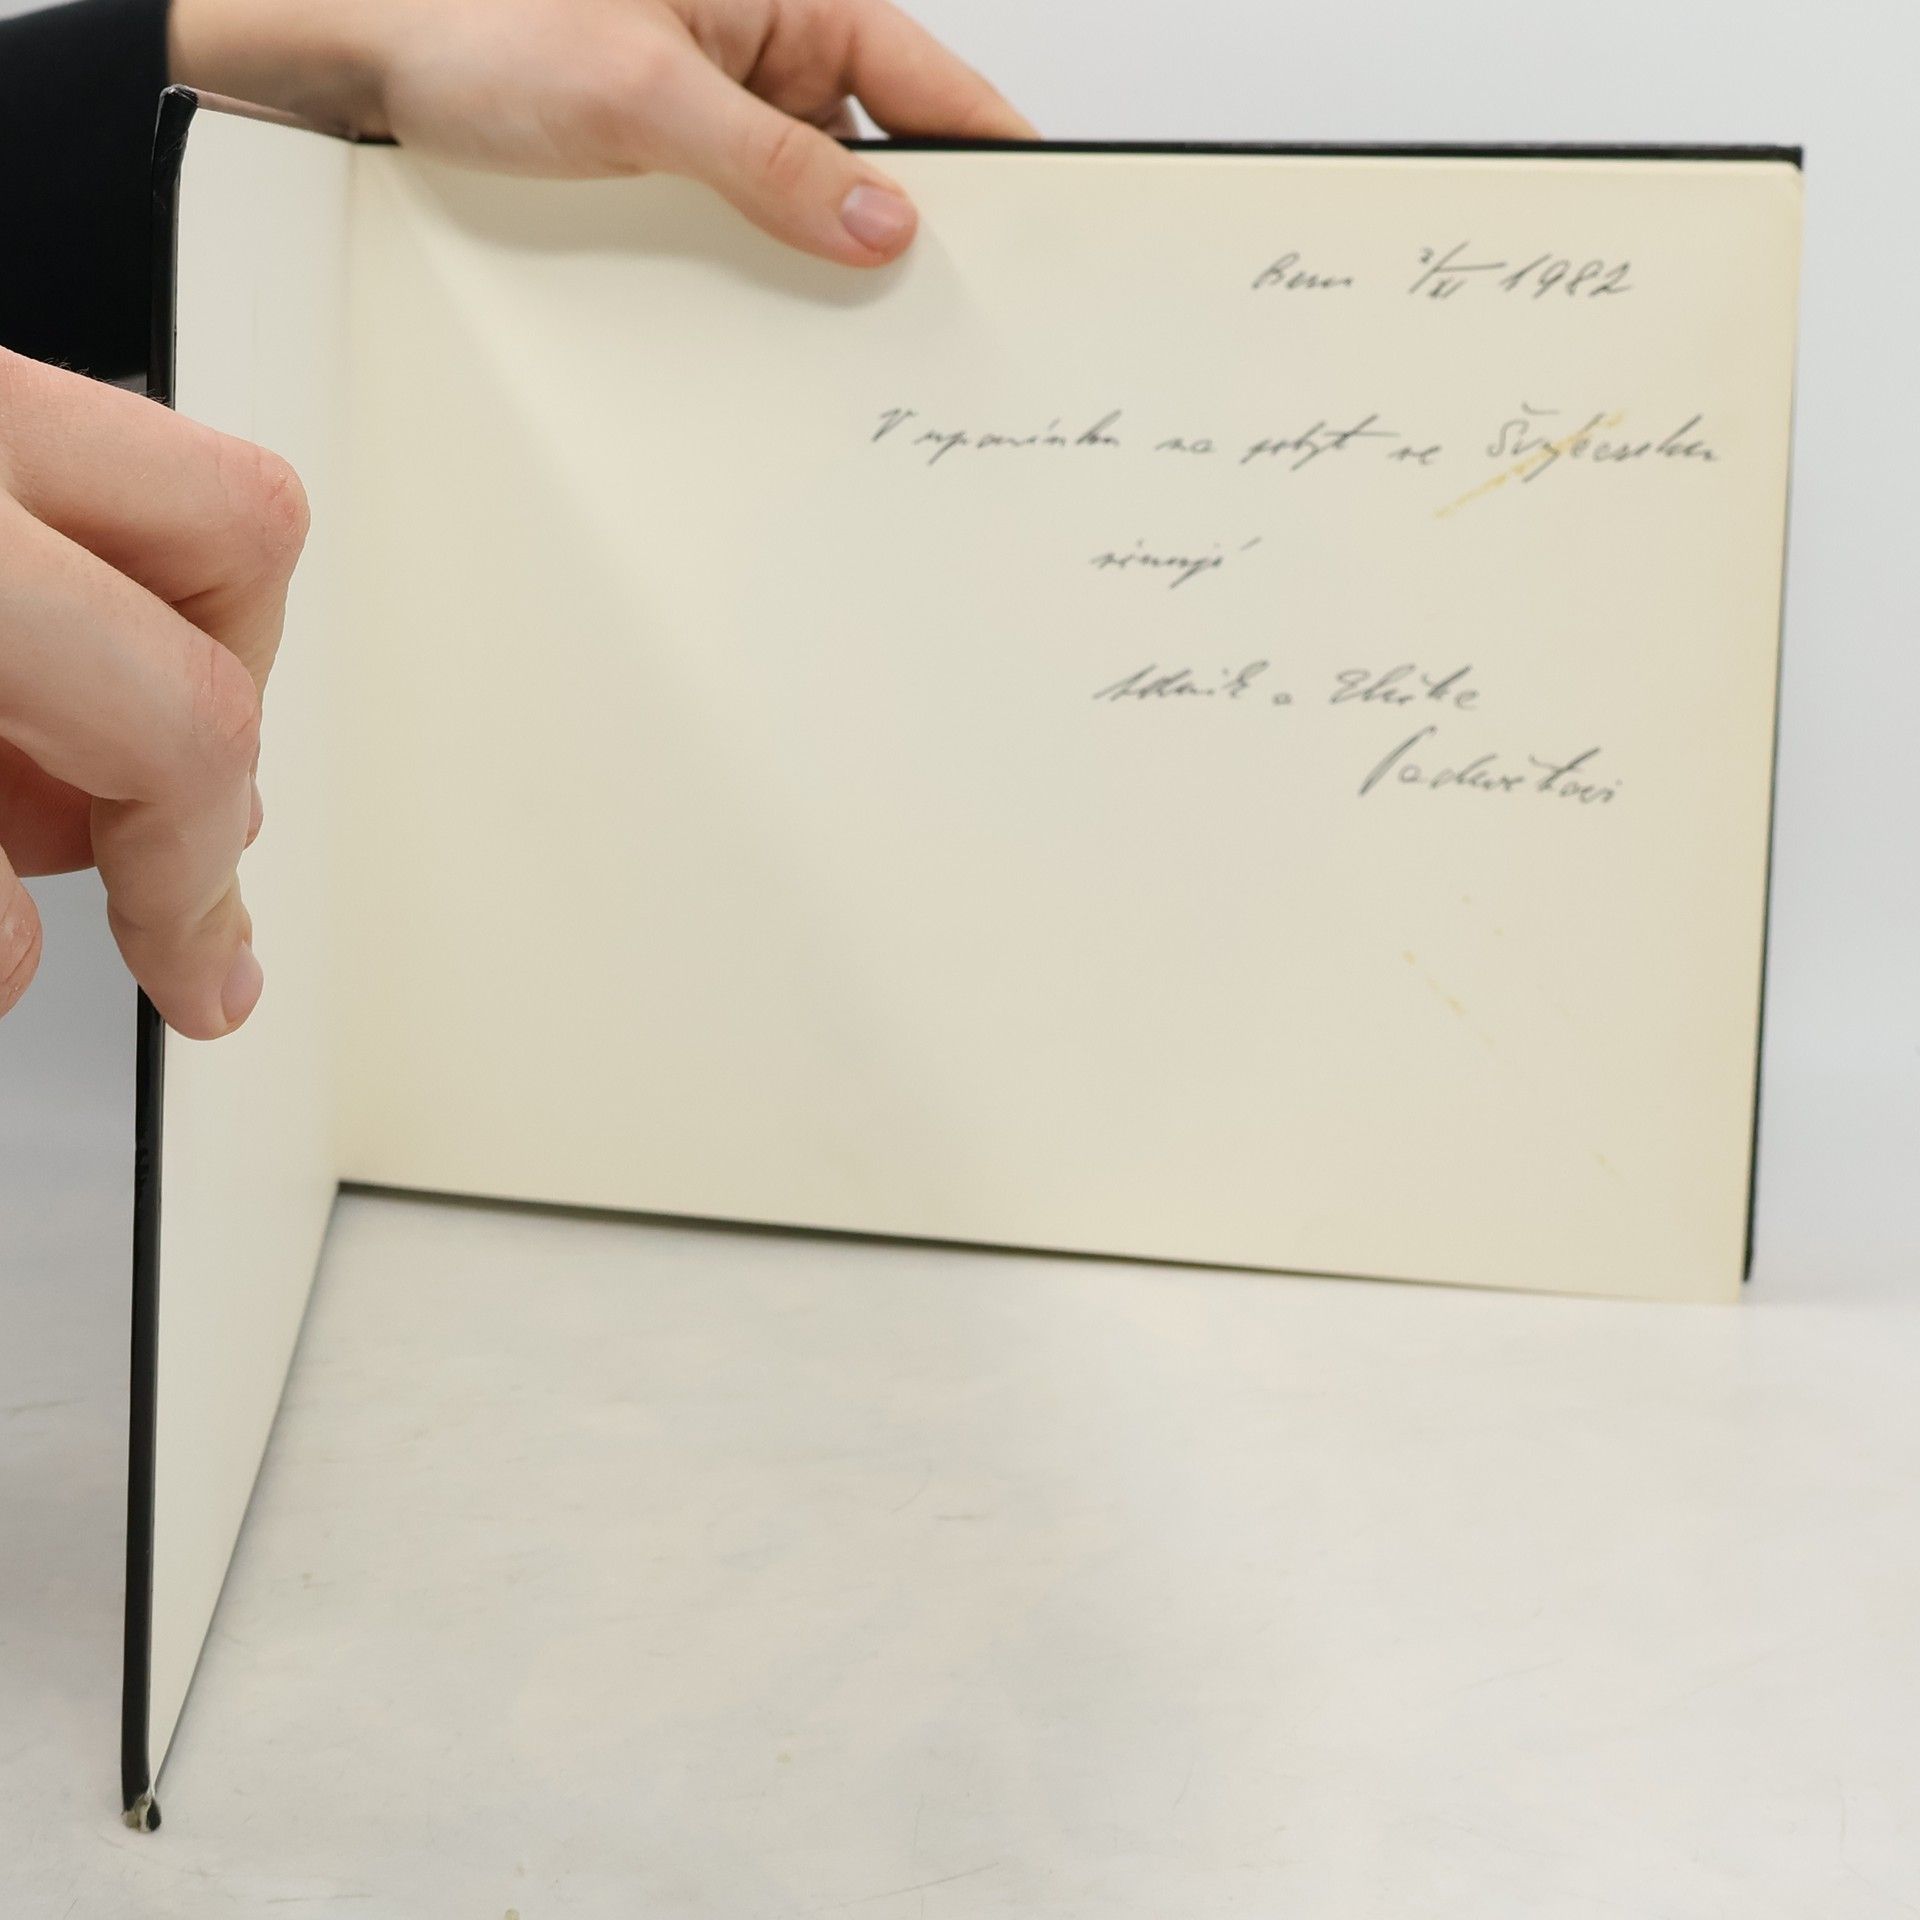 Bern 3/XI 1982
V upomínku na pobyt ve Švýcarsku
věnují
Zdeněk a Eliška
Padevětovi